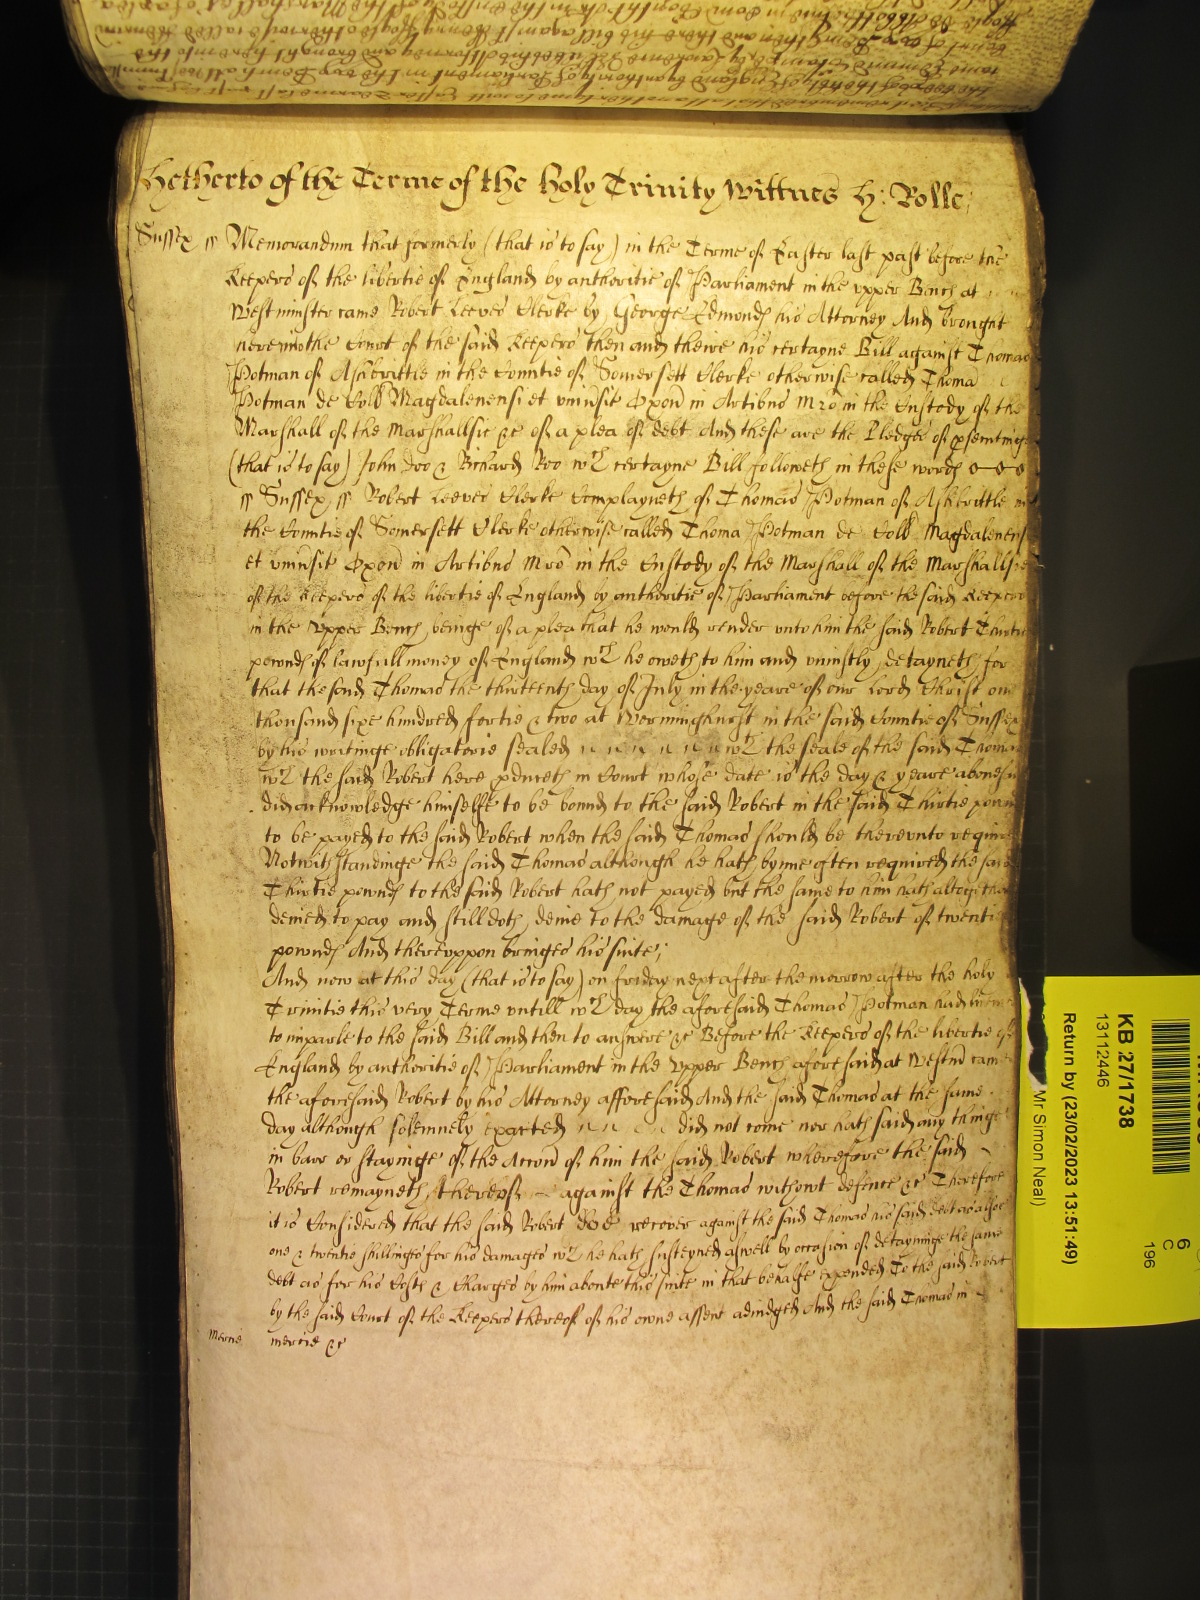 Hetherto of the Terme of the Holy Trinity Wittnes H: Rolle;
Sussex ss Memorandum that formerly (that is to say) in the Terme of Easter last past before the
Keepers of the libertie of England by authoritie of Parliament in the vpper Bench at
Westminster came Robert Leeves Clerke by George Edmonds his Attorney And brought
here into the Court of the said Keepers then and theire his certayne Bill against Thomas
Potman of Ashbrittle in the Countie of Somersett Clerke otherwise called Thoma
Potman de Coll Magdalenensi et vniusit Oxon in Artibus Mro in the Custody of the
Marshall of the Marshallsie &c of a plea of debt And these are the Pledges of psecutinge
(that is to say) John Doo & Richard Roo wch certayne Bill followeth in these words
ss Sussex ss Robert Leeves Clerke Complayneth of Thomas Potman of Ashbrittle in
the Countie of Somersett Clerke otherwise called Thoma Potman de Coll Magdalenensi
et vniusit Oxon in Artibus Mro in the Custody of the Marshall of the Marshallsie
of the Keepers of the libertie of England by authoritie of Parliament before the said Keepers
in the vpper Bench beinge of a plea that he would render vnto him the said Robert Thirtie
pownds of lawfull money of England wch he oweth to him and vniustly detayneth for
that the said Thomas the thirteenth day of July in the yeare of our Lord Christ one
thousand sixe hundred fortie & two at Worminghurst in the said Countie of Sussex
by his writinge obligatorie sealed wth the seale of the said Thomas
wch the said Robert here pduceth in Court whose date is the day & yeare abovesaid
did acknowledge himselfe to be bound to the said Robert in the said Thirtie pownds
to be payed to the said Robert when the said Thomas should be therevnto required
Notwithstandinge the said Thomas although he hath byme often required the said
Thirtie pownds to the said Robert hath not payed but the same to him hath altogither
denied to pay and still doth denie to the damage of the said Robert of twentie
pownds And therevppon bringes his suite;
And now at this day (that is to say) on friday next after the morrow after the holy
Trinitie this very Terme vntill wch day the aforesaid Thomas Potman had licence
to imparle to the said Bill and then to answere &c Before the Keepers of the libertie of
England by authoritie of Parliament in the vpper Bench aforesaid at Westm came
the aforesaid Robert by his Attorney afforesaid And the said Thomas at the same
day although solemnely exacted did not come nor hath said any thinge
in barr or stayinge of the Accon of him the said Robert wherefore the said
Robert remayneth thereof against the Thomas without defence &c Therefore
it is Considered that the said Robert doe recover against the said Thomas his said debt as alsoe
one & twentie shillinges for his damages wch he hath susteyned aswell by occasion of detayninge the same
debt as for his Costs & Charges by him aboute this suite in that behalfe expended To the said Robert
by the said Court of the Keepers thereof of his owne assent adiudged And the said Thomas in
Mercie mercie &c
KB 27/1738
13112446
Return by (23/02/2023 13:51:49)
Mr Simon Neal)
6
C
196